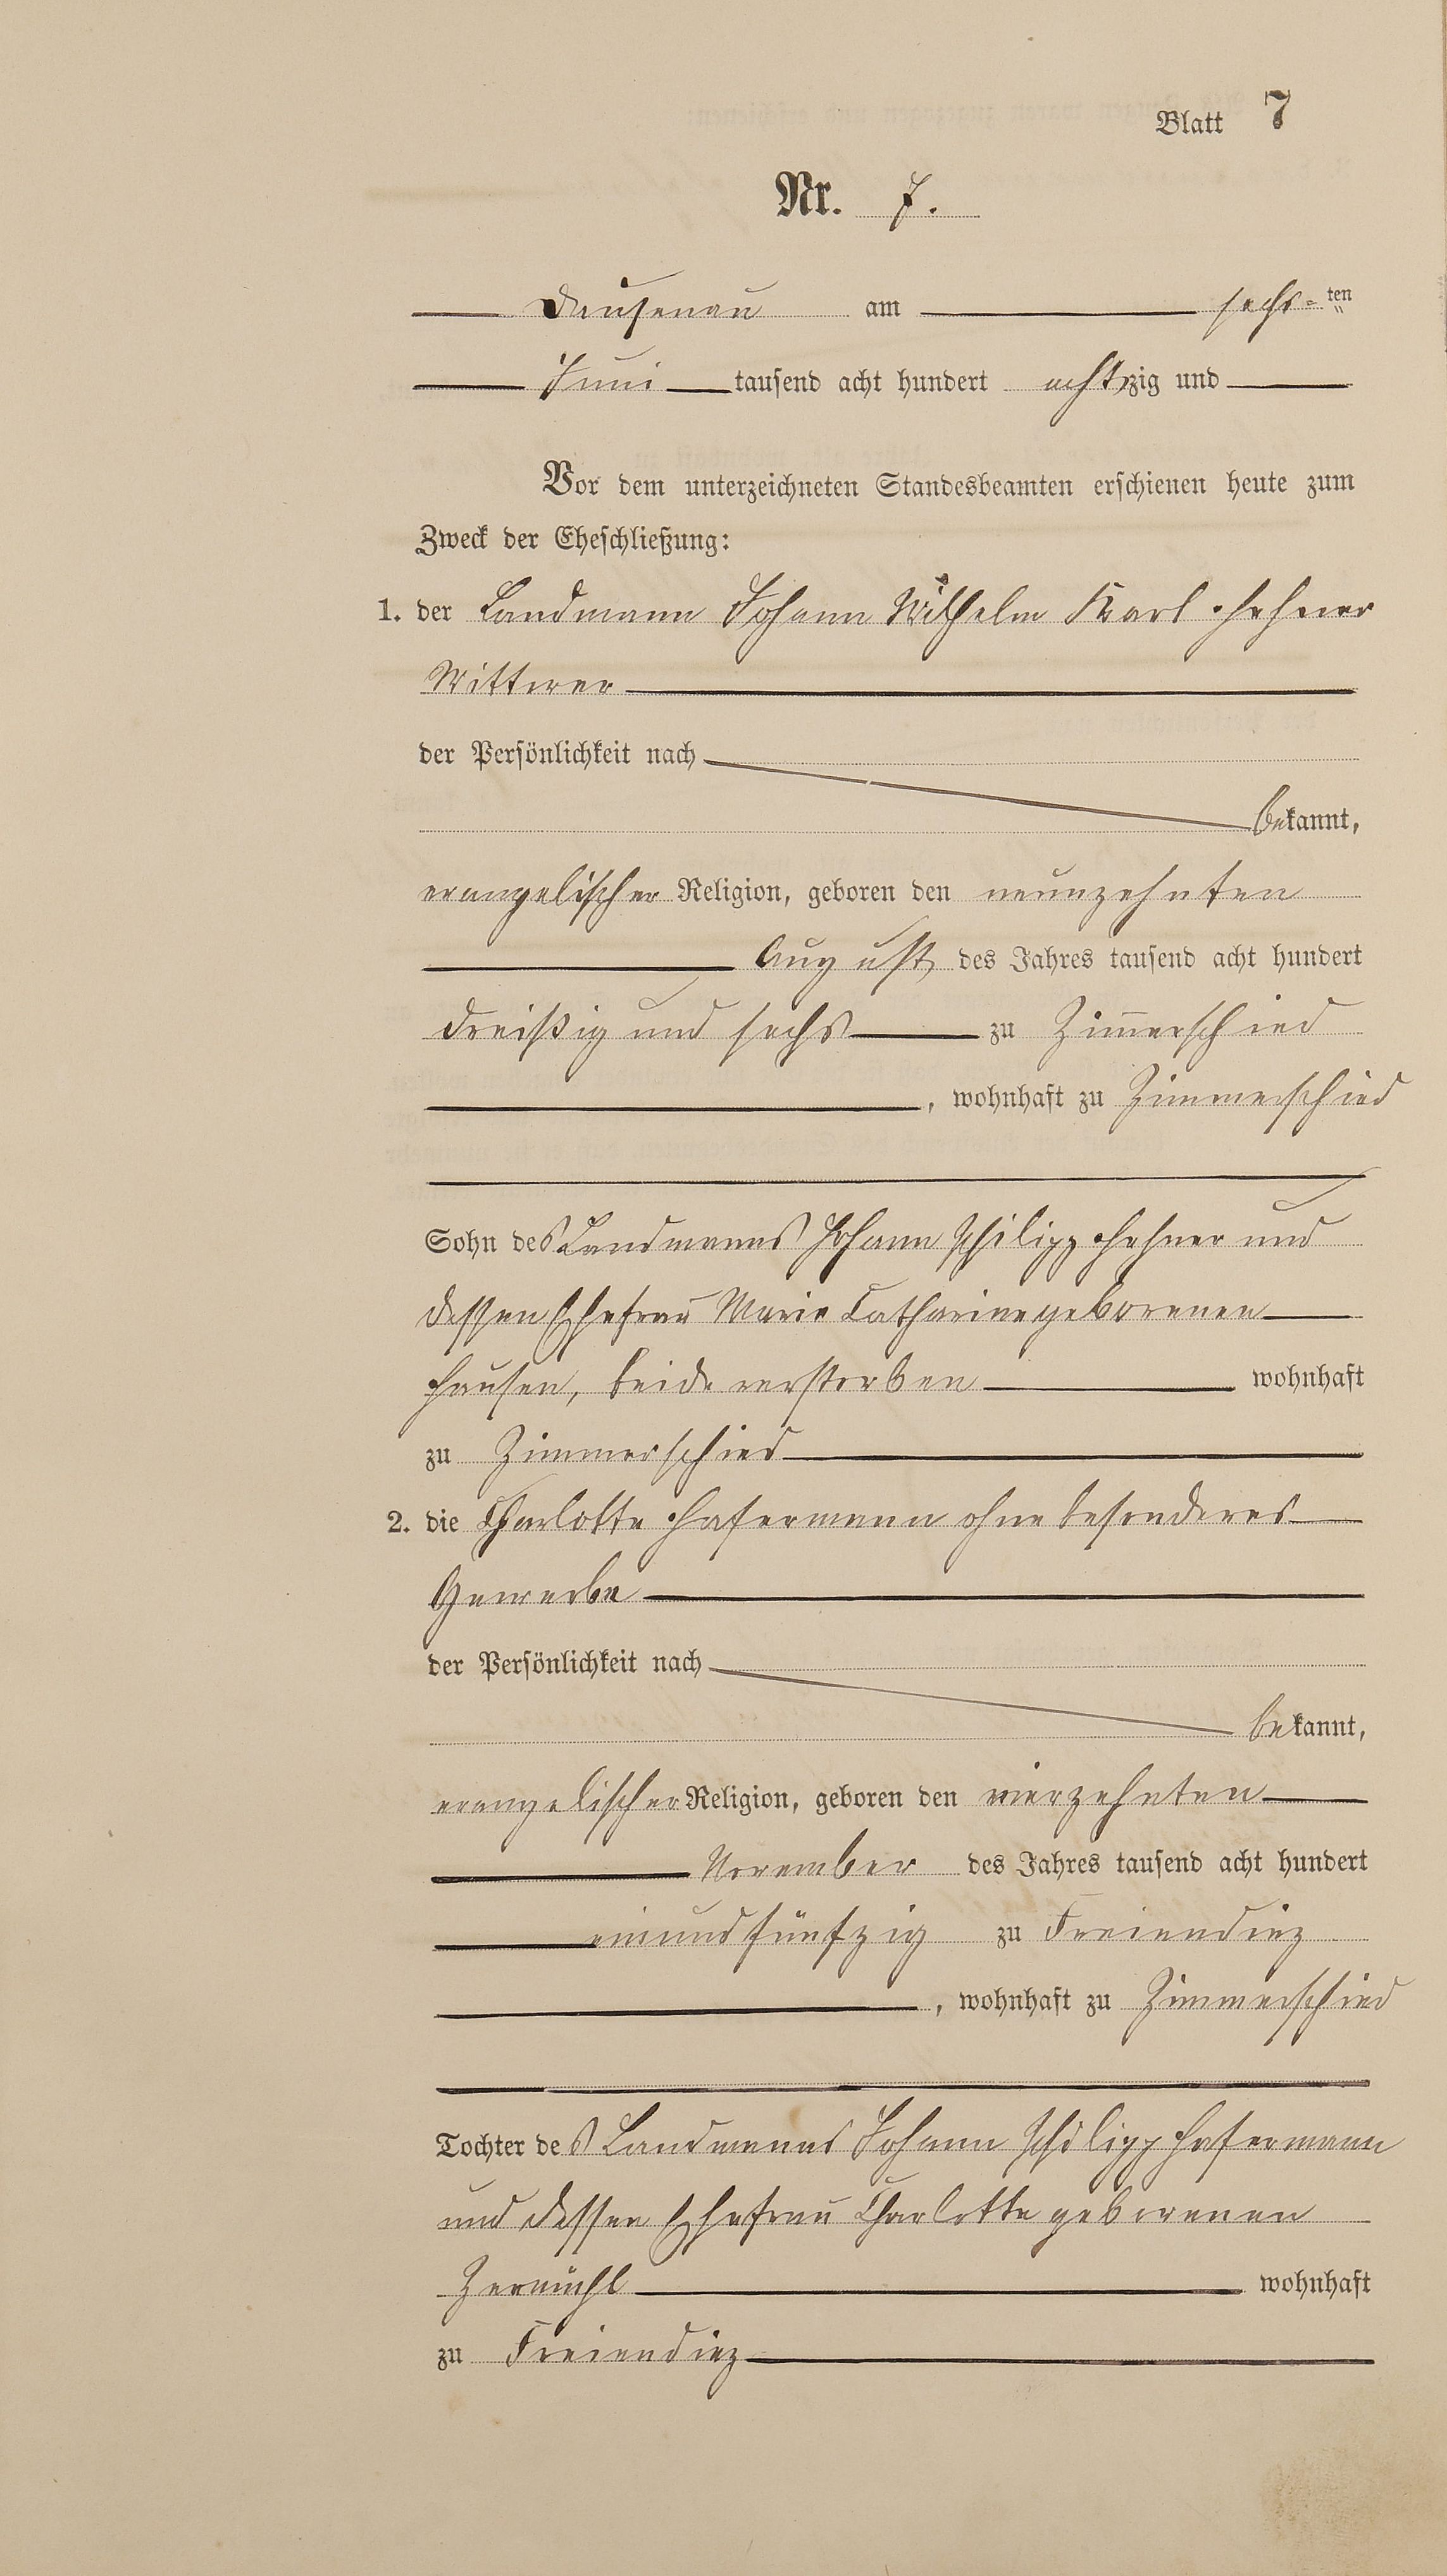 Blatt 7
Nr. 7.
Dausenau am sechs-ten
Juni tausend acht hundert achtzig und
Vor dem unterzeichneten Standesbeamten erschienen heute zum
Zweck der Eheschließung:
1. der Landmann Johann Wilhelm Karl Hehner
Wittwer
der Persönlichkeit nach
bekannt,
evangelischer Religion, geboren den neunzehnten
August des Jahres tausend acht hundert
dreißig und sechs zu Zimerschied
, wohnhaft zu Zimmerschied
Sohn des Landmanns Johann Philipp Hehner und
dessen Ehefrau Marie Catharine geborenen
Hausen, beide verstorben wohnhaft
zu Zimmerschied
2. die Charlotte Hasermann ohne besonderes
Gewerbe
der Persönlichkeit nach
bekannt,
evangelischer Religion, geboren den vierzehnten
November des Jahres tausend acht hundert
einundfünfzig zu Freiendiez
, wohnhaft zu Zimmerschied
Tochter des Landmanns Johann Philipp Hasermann
und dessen Ehefrau Charlotte geborenen
wohnhaft
zu Freiendiez